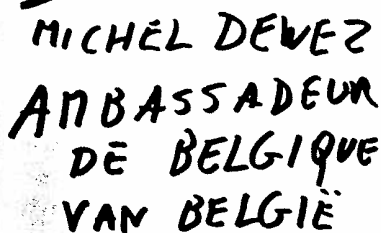 MICHEL DEWEZ
AMBASSADEUR
DE BELGIQUE
VAN BELGIË